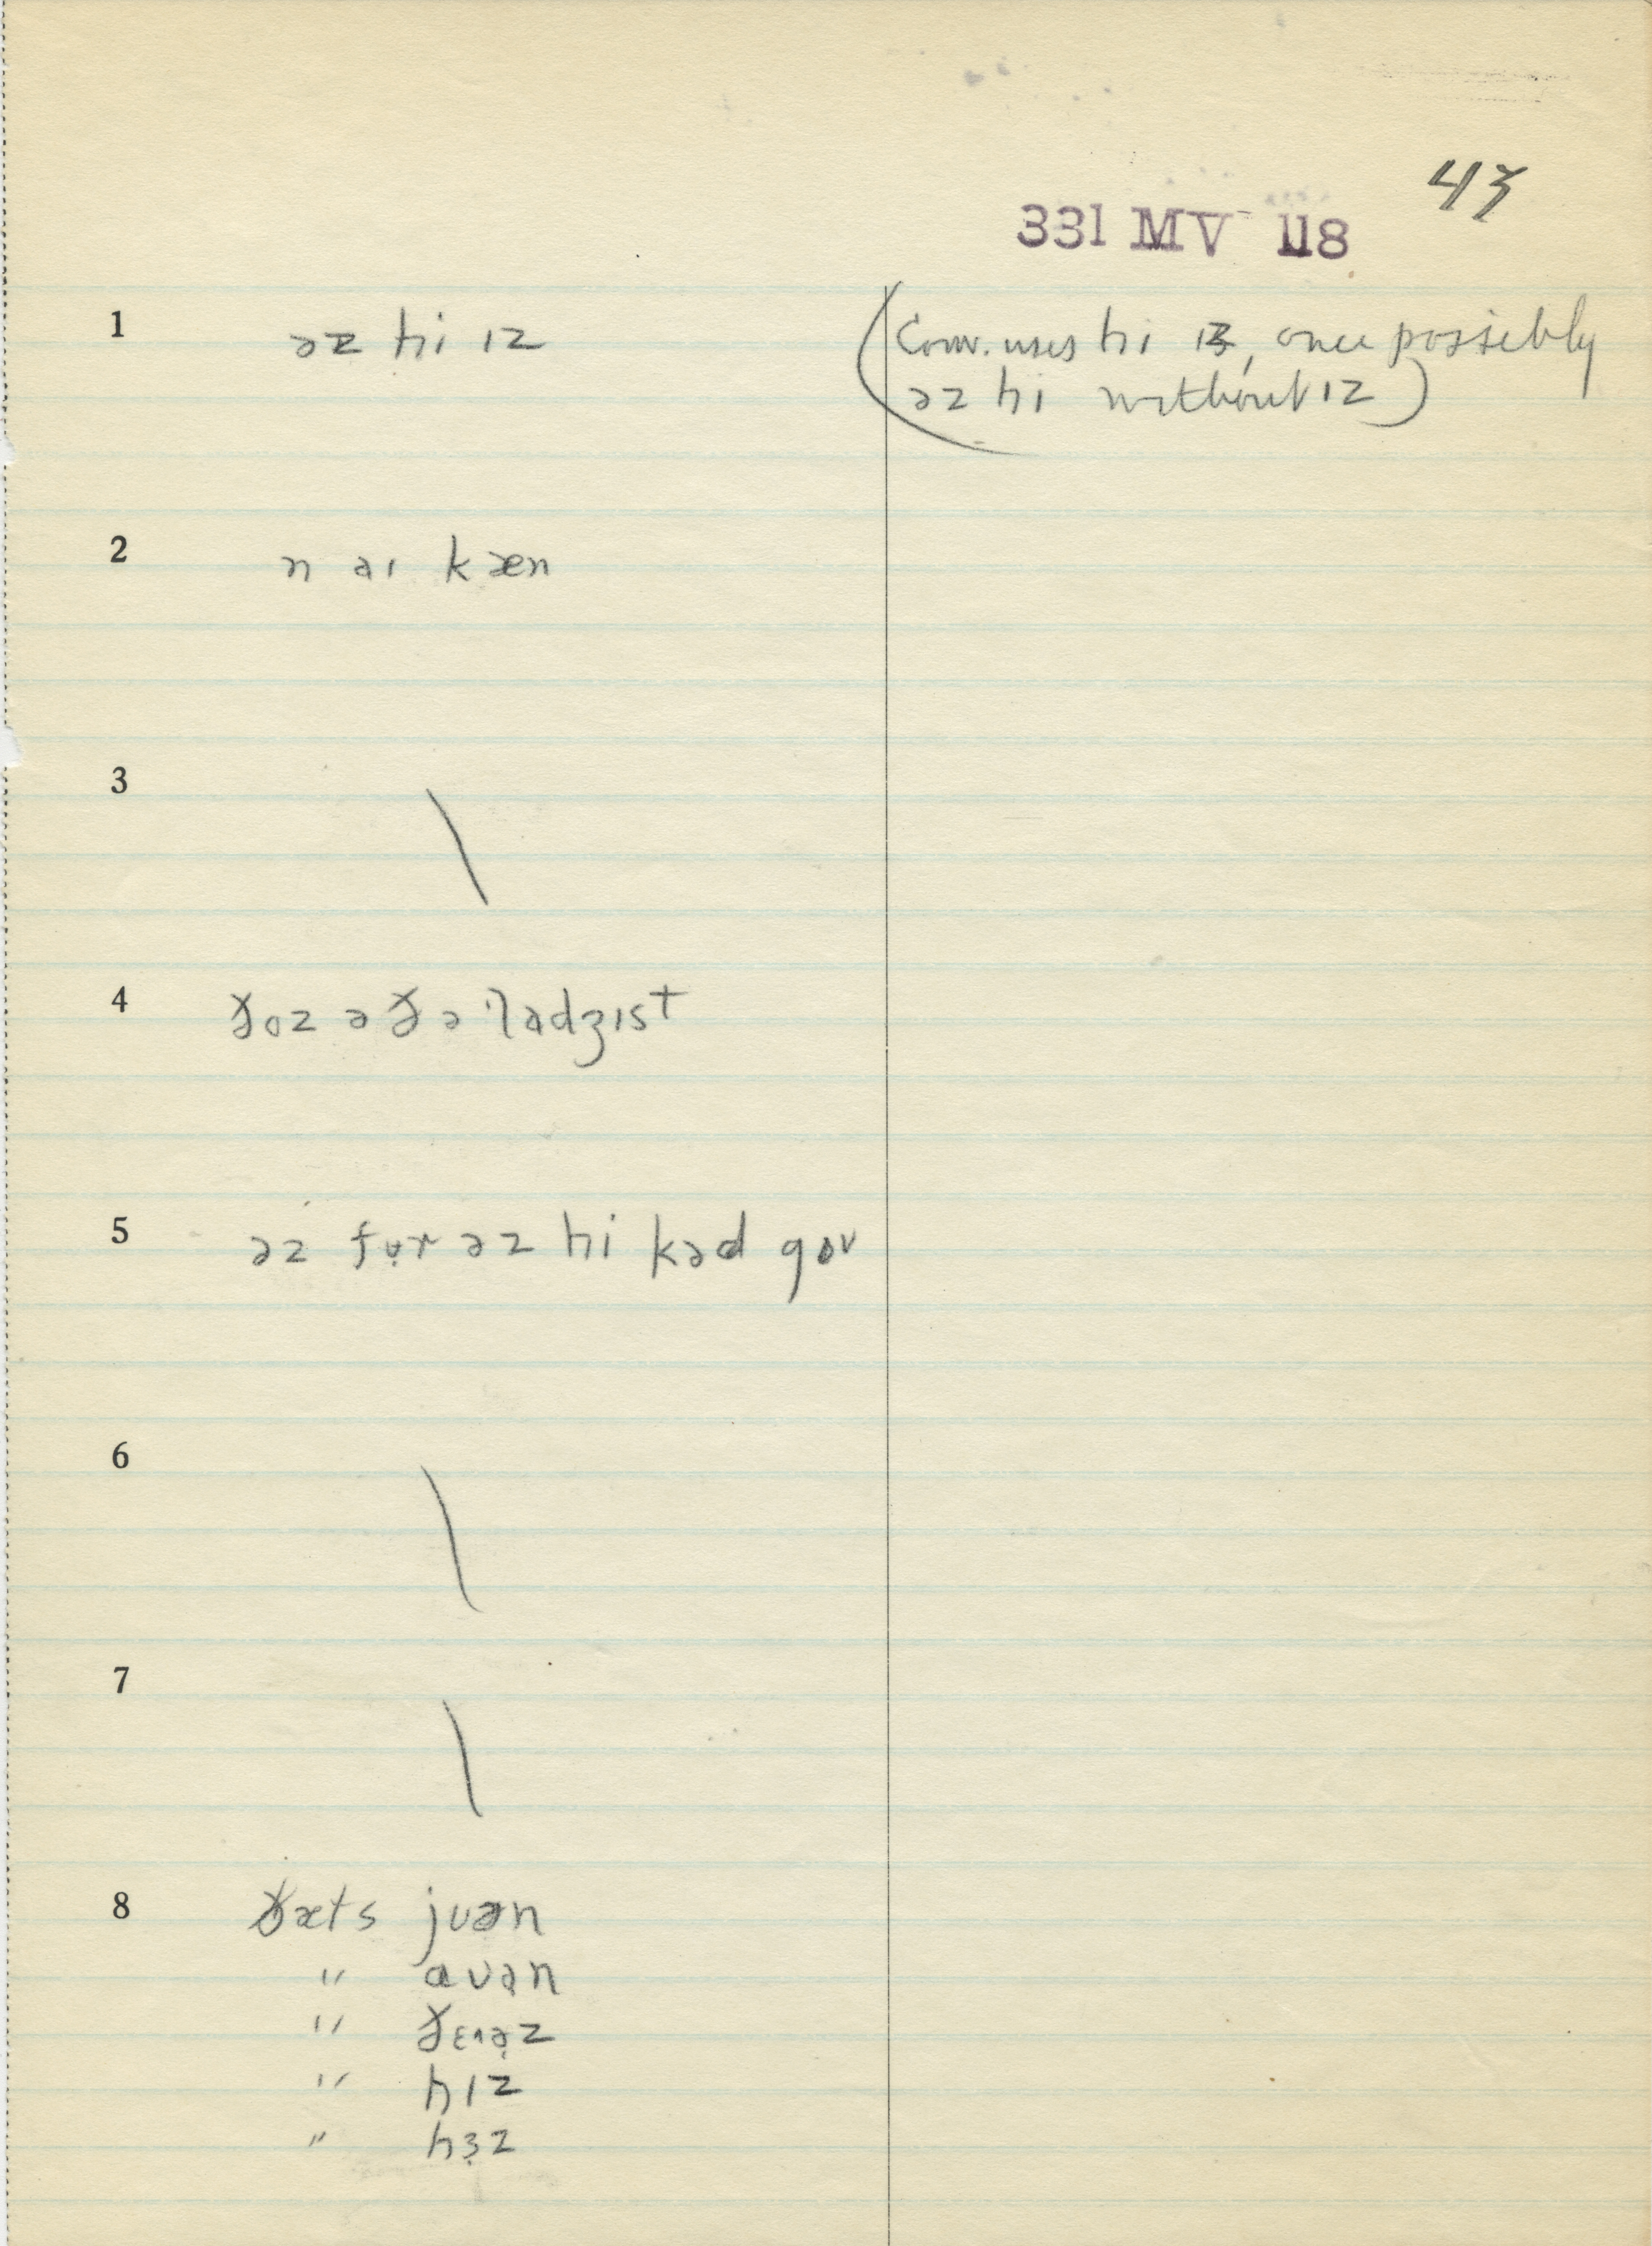 43
331 MV 118
1 əz hi ɪz
(Conv. uses hi ɪz, once possibly
əz hi without ɪz)
2 n aɪ kæn
3 \
4 ðoz ə ðə
5 əz fʊ̣r əz hi kəd gov
6 \
7 \
8 ðæts juən
" avən
" ðɛɪə̣z
" hɪz
" hɜ̣z